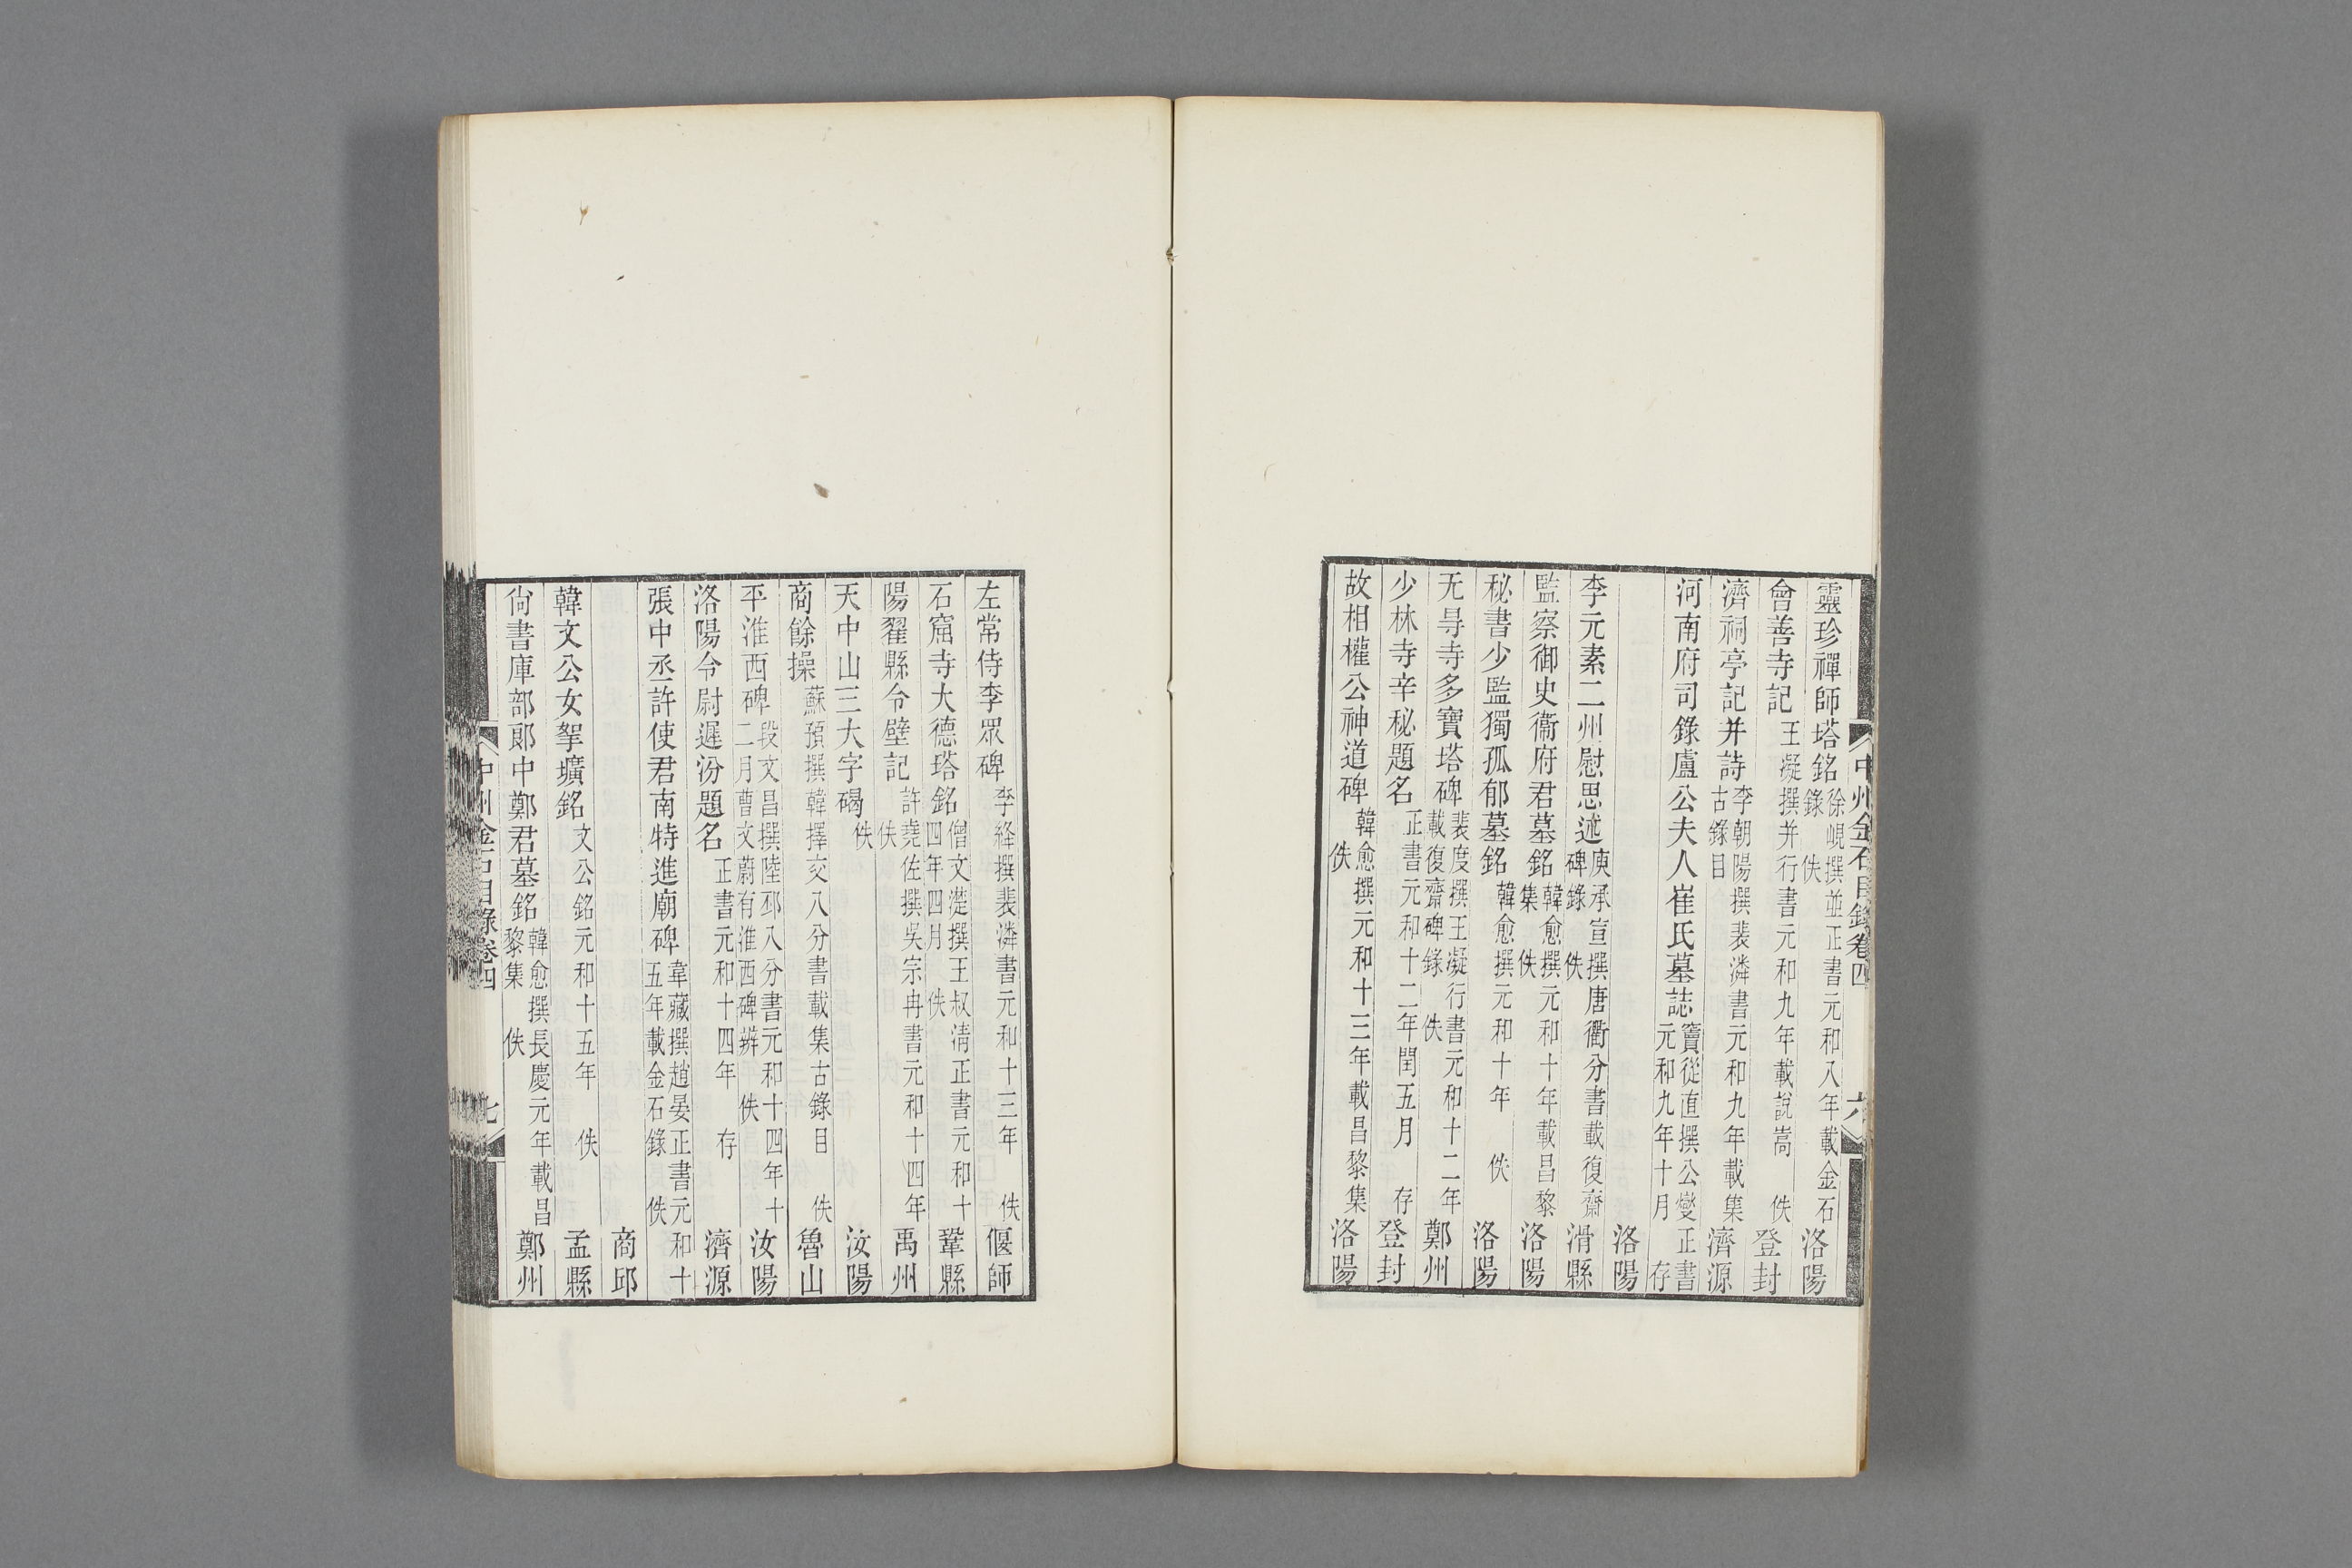 靈珍禪師塔銘徐峴撰並正書元和八年載金石錄　佚　洛陽
會善寺記王凝撰并行書元和九年載說嵩　佚　登封
濟祠亭記并詩李朝陽撰裴潾書元和九年載集古錄目　濟源
河南府司錄盧公夫人崔氏墓誌竇從直撰公燮正書元和九年十月　存
洛陽
李元素二州慰思述庾承宣撰唐衢分書載復齋碑錄　佚　滑縣
監察御史衞府君墓銘韓愈撰元和十年載昌黎集　佚　洛陽
秘書少監獨孤郁墓銘韓愈撰元和十年　佚　洛陽
无㝵寺多寶塔碑裴度撰王凝行書元和十二年載復齋碑錄　佚　鄭州
少林寺辛秘題名正書元和十二年閏五月　存　登封
故相權公神道碑韓愈撰元和十三年載昌黎集　佚　洛陽
中州金石目錄卷四　六
左常侍李眾碑李絳撰裴潾書元和十三年　佚　偃師
石窟寺大德塔銘僧文蓯撰王叔清正書元和十四年四月　佚　鞏縣
陽翟縣令壁記許堯佐撰吳宗冉書元和十四年　佚　禹州
天中山三大字碣　佚　汝陽
商餘操蘇預撰韓擇交八分書載集古錄目　佚　魯山
平淮西碑段文昌撰陸邳八分書元和十四年十二月曹文蔚有淮西碑辨　佚　汝陽
洛陽令尉遲汾題名正書元和十四年　存　濟源
張中丞許使君南特進廟碑韋藏撰趙晏正書元和十五年載金石錄　佚
商邱
韓文公女挐壙銘文公銘元和十五年　佚　孟縣
尙書庫部郎中鄭君墓銘韓愈撰長慶元年載昌黎集　佚　鄭州
中州金石目錄卷四　七